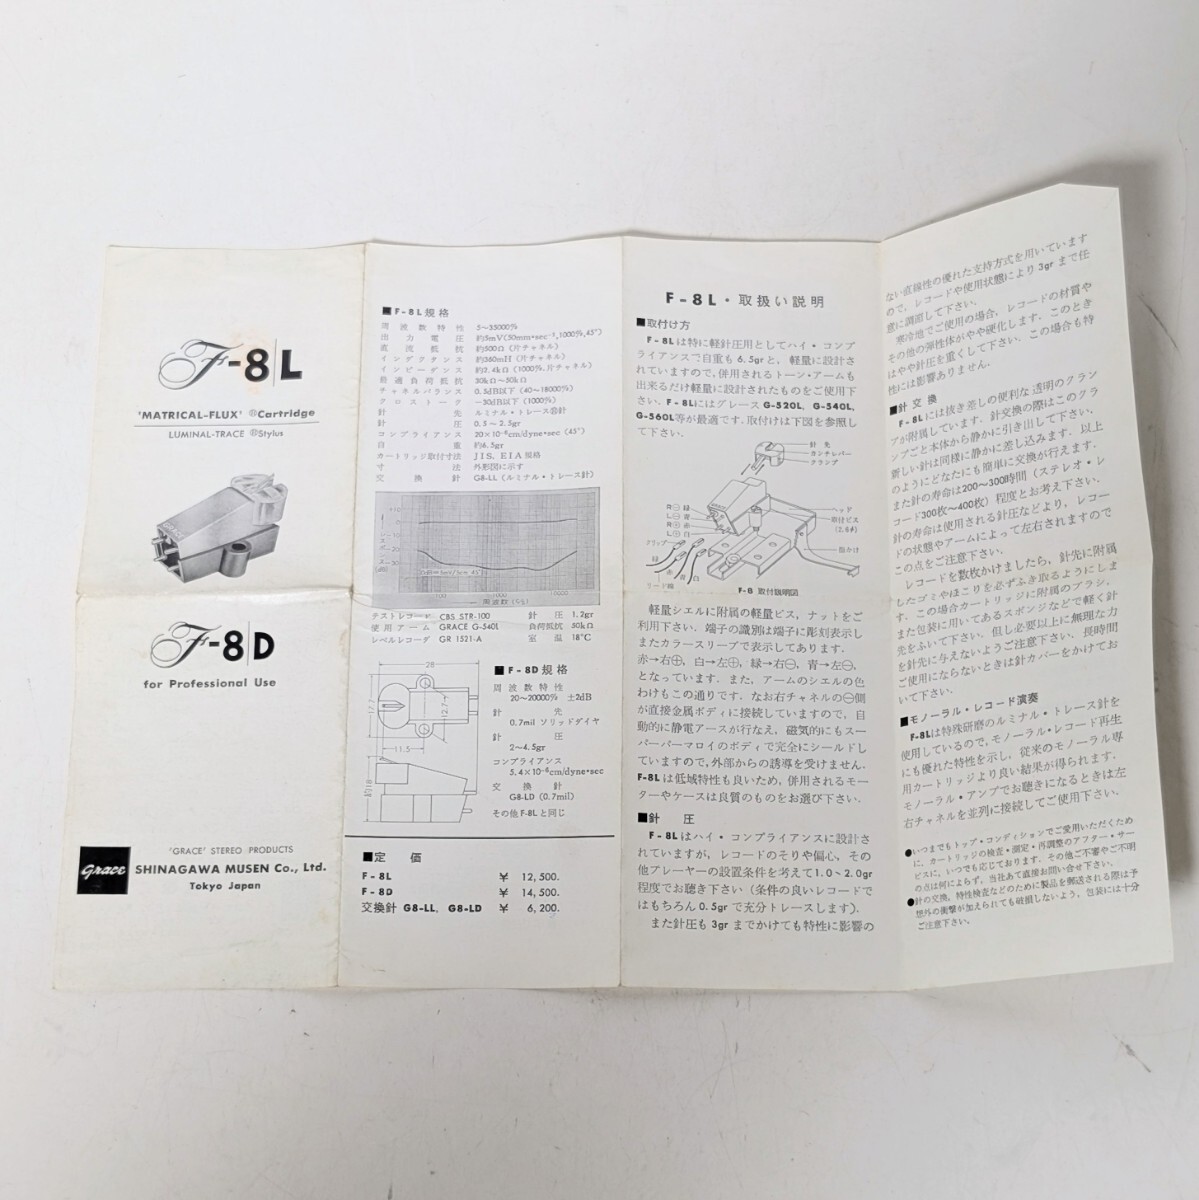 F-8/L
'MATRICAL-FLUX' ®Cartridge
LUMINAL-TRACE ®Stylus
F-8/D
for Professional Use
Grace
'GRACE' STEREO PRODUCTS
SHINAGAWA MUSEN Co., Ltd.
Tokyo Japan
■F-8L規格
周波数特性 5~35000%
出力電圧 約5mV(50mm・sec⁻¹,1000%,45°)
直流抵抗 約500Ω(片チャネル)
インダクタンス 約360mH(片チャネル)
インピーダンス 約2.4kΩ(1000%,片チャネル)
最適負荷抵抗 30kΩ~50kΩ
チャネルバランス 0.3dB以下(40~18000%)
クロストーク −30dB以下(1000%)
針先 ルミナル・トレース®針
針圧 0.5~2.5gr
コンプライアンス 20×10⁻⁶cm/dyne・sec(45°)
自重 約6.5gr
カートリッジ取付寸法 JIS, EIA規格
寸法 外形図に示す
交換針 G8-LL(ルミナル・トレース針)
+10
0
-10
-20
-30
レースポンス
(dB)
0dB=5mV/5cm 45°
100 1000 10000
周波数(%)
テストレコード CBS STR-100 針圧 1.2gr
使用アーム GRACE G-540L 負荷抵抗 50kΩ
レベルレコーダ GR 1521-A 室温 18°C
28
17.7
12.7
11.5
約18
■F-8D規格
周波数特性
20~20000% ±2dB
針先
0.7mil ソリッドダイヤ
針圧
2~4.5gr
コンプライアンス
5.4×10⁻⁶cm/dyne・sec
交換針
G8-LD (0.7mil)
その他F-8Lと同じ
■定価
F-8L ¥ 12,500.
F-8D ¥ 14,500.
交換針 G8-LL, G8-LD ¥ 6,200.
F-8L・取扱い説明
■取付け方
F-8Lは特に軽針圧用としてハイ・コンプ
ライアンスで自重も6.5grと,軽量に設計さ
れていますので,併用されるトーン・アームも
出来るだけ軽量に設計されたものをご使用下
さい. F-8LにはグレースG-520L, G-540L,
G-560L等が最適です.取付けは下図を参照し
て下さい.
針先
カンチレバー
クランプ
R⊖ 緑
L⊖ 青
R⊕ 赤
L⊕ 白
クリップ
ヘッド
取付ビス
(2.6φ)
指かけ
緑
赤
青
白
リード線
F-8 取付説明図
軽量シエルに附属の軽量ビス,ナットをご
利用下さい.端子の識別は端子に彫刻表示し
またカラースリーブで表示してあります.
赤→右⊕,白→左⊕,緑→右⊖,青→左⊖,
となっています.また,アームのシエルの色
わけもこの通りです.なお右チャネルの⊖側
が直接金属ボディに接続していますので,自
動的に静電アースが行なえ,磁気的にもスー
パーパーマロイのボディで完全にシールドし
ていますので,外部からの誘導を受けません.
F-8Lは低域特性も良いため,併用されるモー
ターやケースは良質のものをお選び下さい.
■針圧
F-8Lはハイ・コンプライアンスに設計さ
れていますが,レコードのそりや偏心,その
他プレーヤーの設置条件を考えて1.0~2.0gr
程度でお聴き下さい(条件の良いレコードで
はもちろん0.5grで充分トレースします).
また針圧も3grまでかけても特性に影響の
ない直線性の優れた支持方式を用いています
ので,レコードや使用状態により3grまで任
意に調節して下さい.
寒冷地でご使用の場合,レコードの材質や
その他の弾性体がやや硬化します.このとき
はやや針圧を重くして下さい.この場合も特
性には影響ありません.
■針交換
F-8Lには抜き差しの便利な透明のクラン
プが附属しています.針交換の際はこのクラ
ンプごと本体から静かに引き出して下さい.
新しい針は同様に静かに差し込みます.以上
のようにどなたにも簡単に交換が行えます.
また針の寿命は200~300時間(ステレオ・レ
コード300枚~400枚)程度とお考え下さい.
針の寿命は使用される針圧などより,レコー
ドの状態やアームによって左右されますので
この点をご注意下さい.
レコードを数枚かけましたら,針先に附属
したゴミやほこりを必ずふき取るようにしま
す.この場合カートリッジに附属のブラシ,
また包装に用いてあるスポンジなどで軽く針
先をふいて下さい.但し必要以上に無理な力
を針先に与えないようご注意下さい.長時間
ご使用にならないときは針カバーをかけてお
いて下さい.
■モノーラル・レコード演奏
F-8Lは特殊研磨のルミナル・トレース針を
使用しているので,モノーラル・レコード再生
にも優れた特性を示し,従来のモノーラル専
用カートリッジより良い結果が得られます.
モノーラル・アンプでお聴きになるときは左
右チャネルを並列に接続してご使用下さい.
●いつまでもトップ・コンディションでご愛用いただくため
に,カートリッジの検査・測定・再調整のアフター・サー
ビスに,いつでも応じております.その他ご不審やご不明
の点は何によらず,当社あて直接お問い合せ下さい.
●針の交換,特性検査などのために製品を郵送される際は予
想外の衝撃が加えられても破損しないよう,包装には十分
ご注意下さい.